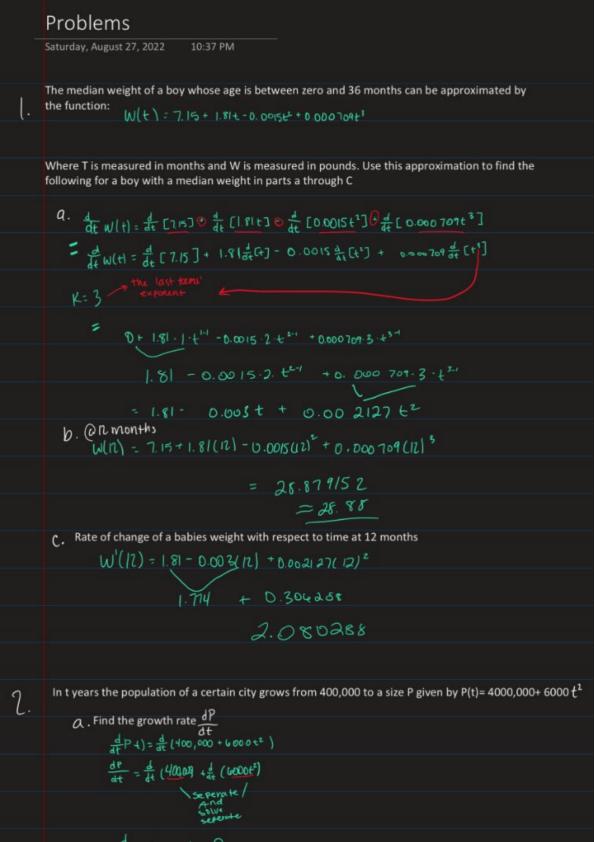 Problems
Saturday, August 27, 2022 10:37 PM
1. The median weight of a boy whose age is between zero and 36 months can be approximated by
the function: W(t) = 7.15 + 1.81t - 0.0015t² + 0.000709t³
Where T is measured in months and W is measured in pounds. Use this approximation to find the
following for a boy with a median weight in parts a through C
a. d/dt W(t) = d/dt [7.15] + d/dt [1.81t] - d/dt [0.0015t²] + d/dt [0.000709t³]
= d/dt W(t) = d/dt [7.15] + 1.81 d/dt [t] - 0.0015 d/dt [t²] + 0.000709 d/dt [t³]
K = 3 → the last terms'
exponent
=
0 + 1.81 · 1 · t¹⁻¹ - 0.0015 · 2 · t²⁻¹ + 0.000709 · 3 · t³⁻¹
1.81 - 0.0015 · 2 · t²⁻¹ + 0.000709 · 3 · t³⁻¹
= 1.81 - 0.003t + 0.002127t²
b. @12 months
W(12) = 7.15 + 1.81(12) - 0.0015(12)² + 0.000709(12)³
= 28.879152
= 28.88
c. Rate of change of a babies weight with respect to time at 12 months
W'(12) = 1.81 - 0.003(12) + 0.002127(12)²
1.774 + 0.306288
2.080288
2. In t years the population of a certain city grows from 400,000 to a size P given by P(t)= 4000,000+ 6000 t²
a. Find the growth rate dP/dt
d/dt P t) = d/dt (400,000 + 6000t²)
dP/dt = d/dt (400,00) + d/dt (6000t²)
\ seperate /
And
solve
seperate